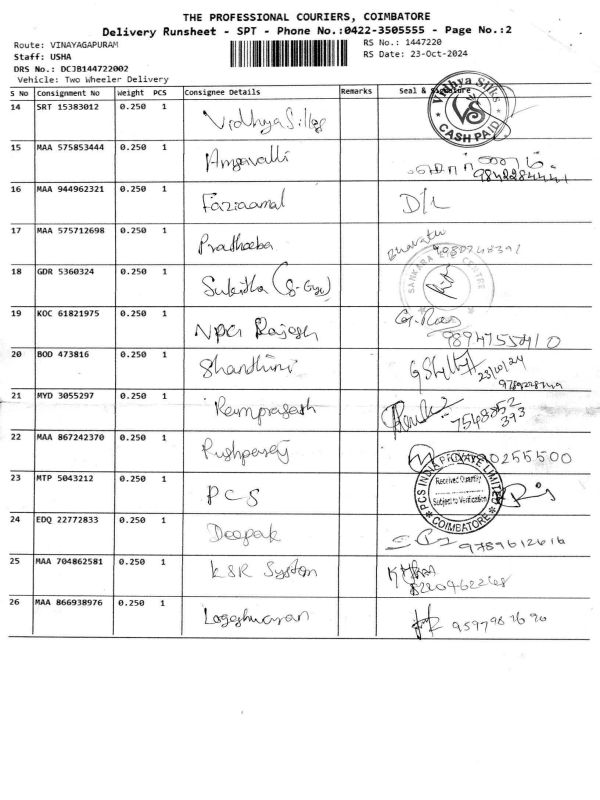 THE PROFESSIONAL COURIERS, COIMBATORE
Delivery Runsheet - SPT - Phone No.:0422-3505555 - Page No.:2
Route: VINAYAGAPURAM RS No.: 1447220
Staff: USHA RS Date: 23-Oct-2024
DRS No.: DCJB144722002
Vehicle: Two Wheeler Delivery
S No Consignment No Weight PCS Consignee Details Remarks Seal & Signature
14 SRT 15383012 0.250 1 Vidhya Silks Vidhya Silks VS CASH PAID
15 MAA 575853444 0.250 1 9842284441
16 MAA 944962321 0.250 1 D/L
17 MAA 575712698 0.250 1 Pradheeba Bharathi
18 GDR 5360324 0.250 1 SANKARA EYE CENTRE
19 KOC 61821975 0.250 1 NPCI Rajesh 9894755410
20 BOD 473816 0.250 1 Shandhini 23/10/24
21 MYD 3055297 0.250 1 Ramprasath 7548852
393
22 MAA 867242370 0.250 1 0255500
23 MTP 5043212 0.250 1 PCS PCS INDIA PRIVATE LIMITED Received Quantity Subject to Verification COIMBATORE
24 EDQ 22772833 0.250 1 Deepak 9789612616
25 MAA 704862581 0.250 1 KSR System
26 MAA 866938976 0.250 1 Logeshwaran